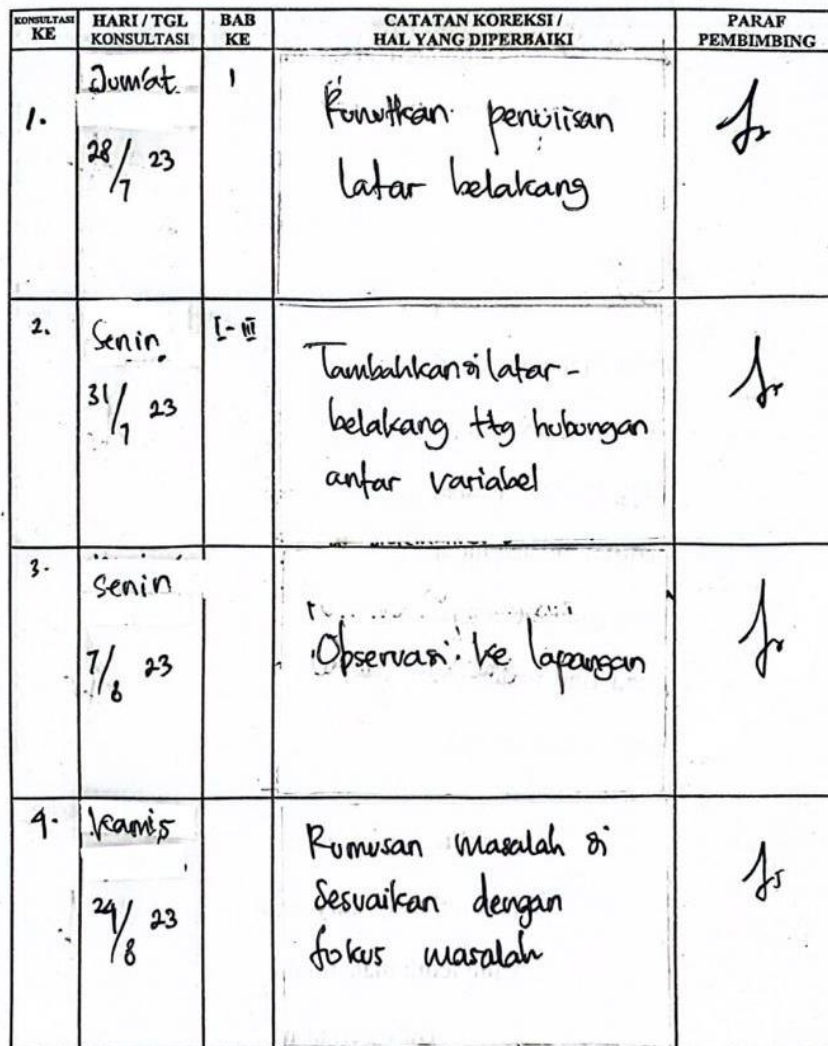 KONSULTASI KE
HARI / TGL KONSULTASI
BAB KE
CATATAN KOREKSI / HAL YANG DIPERBAIKI
PARAF PEMBIMBING
1.
Jum'at
28/7 23
1
Runutkan penulisan
latar belakang
2.
Senin
31/7 23
I - III
Tambahkan di latar -
belakang ttg hubungan
antar variabel
3.
Senin
7/8 23
Observasi ke lapangan
4.
Kamis
24/8 23
Rumusan masalah di
sesuaikan dengan
fokus masalah